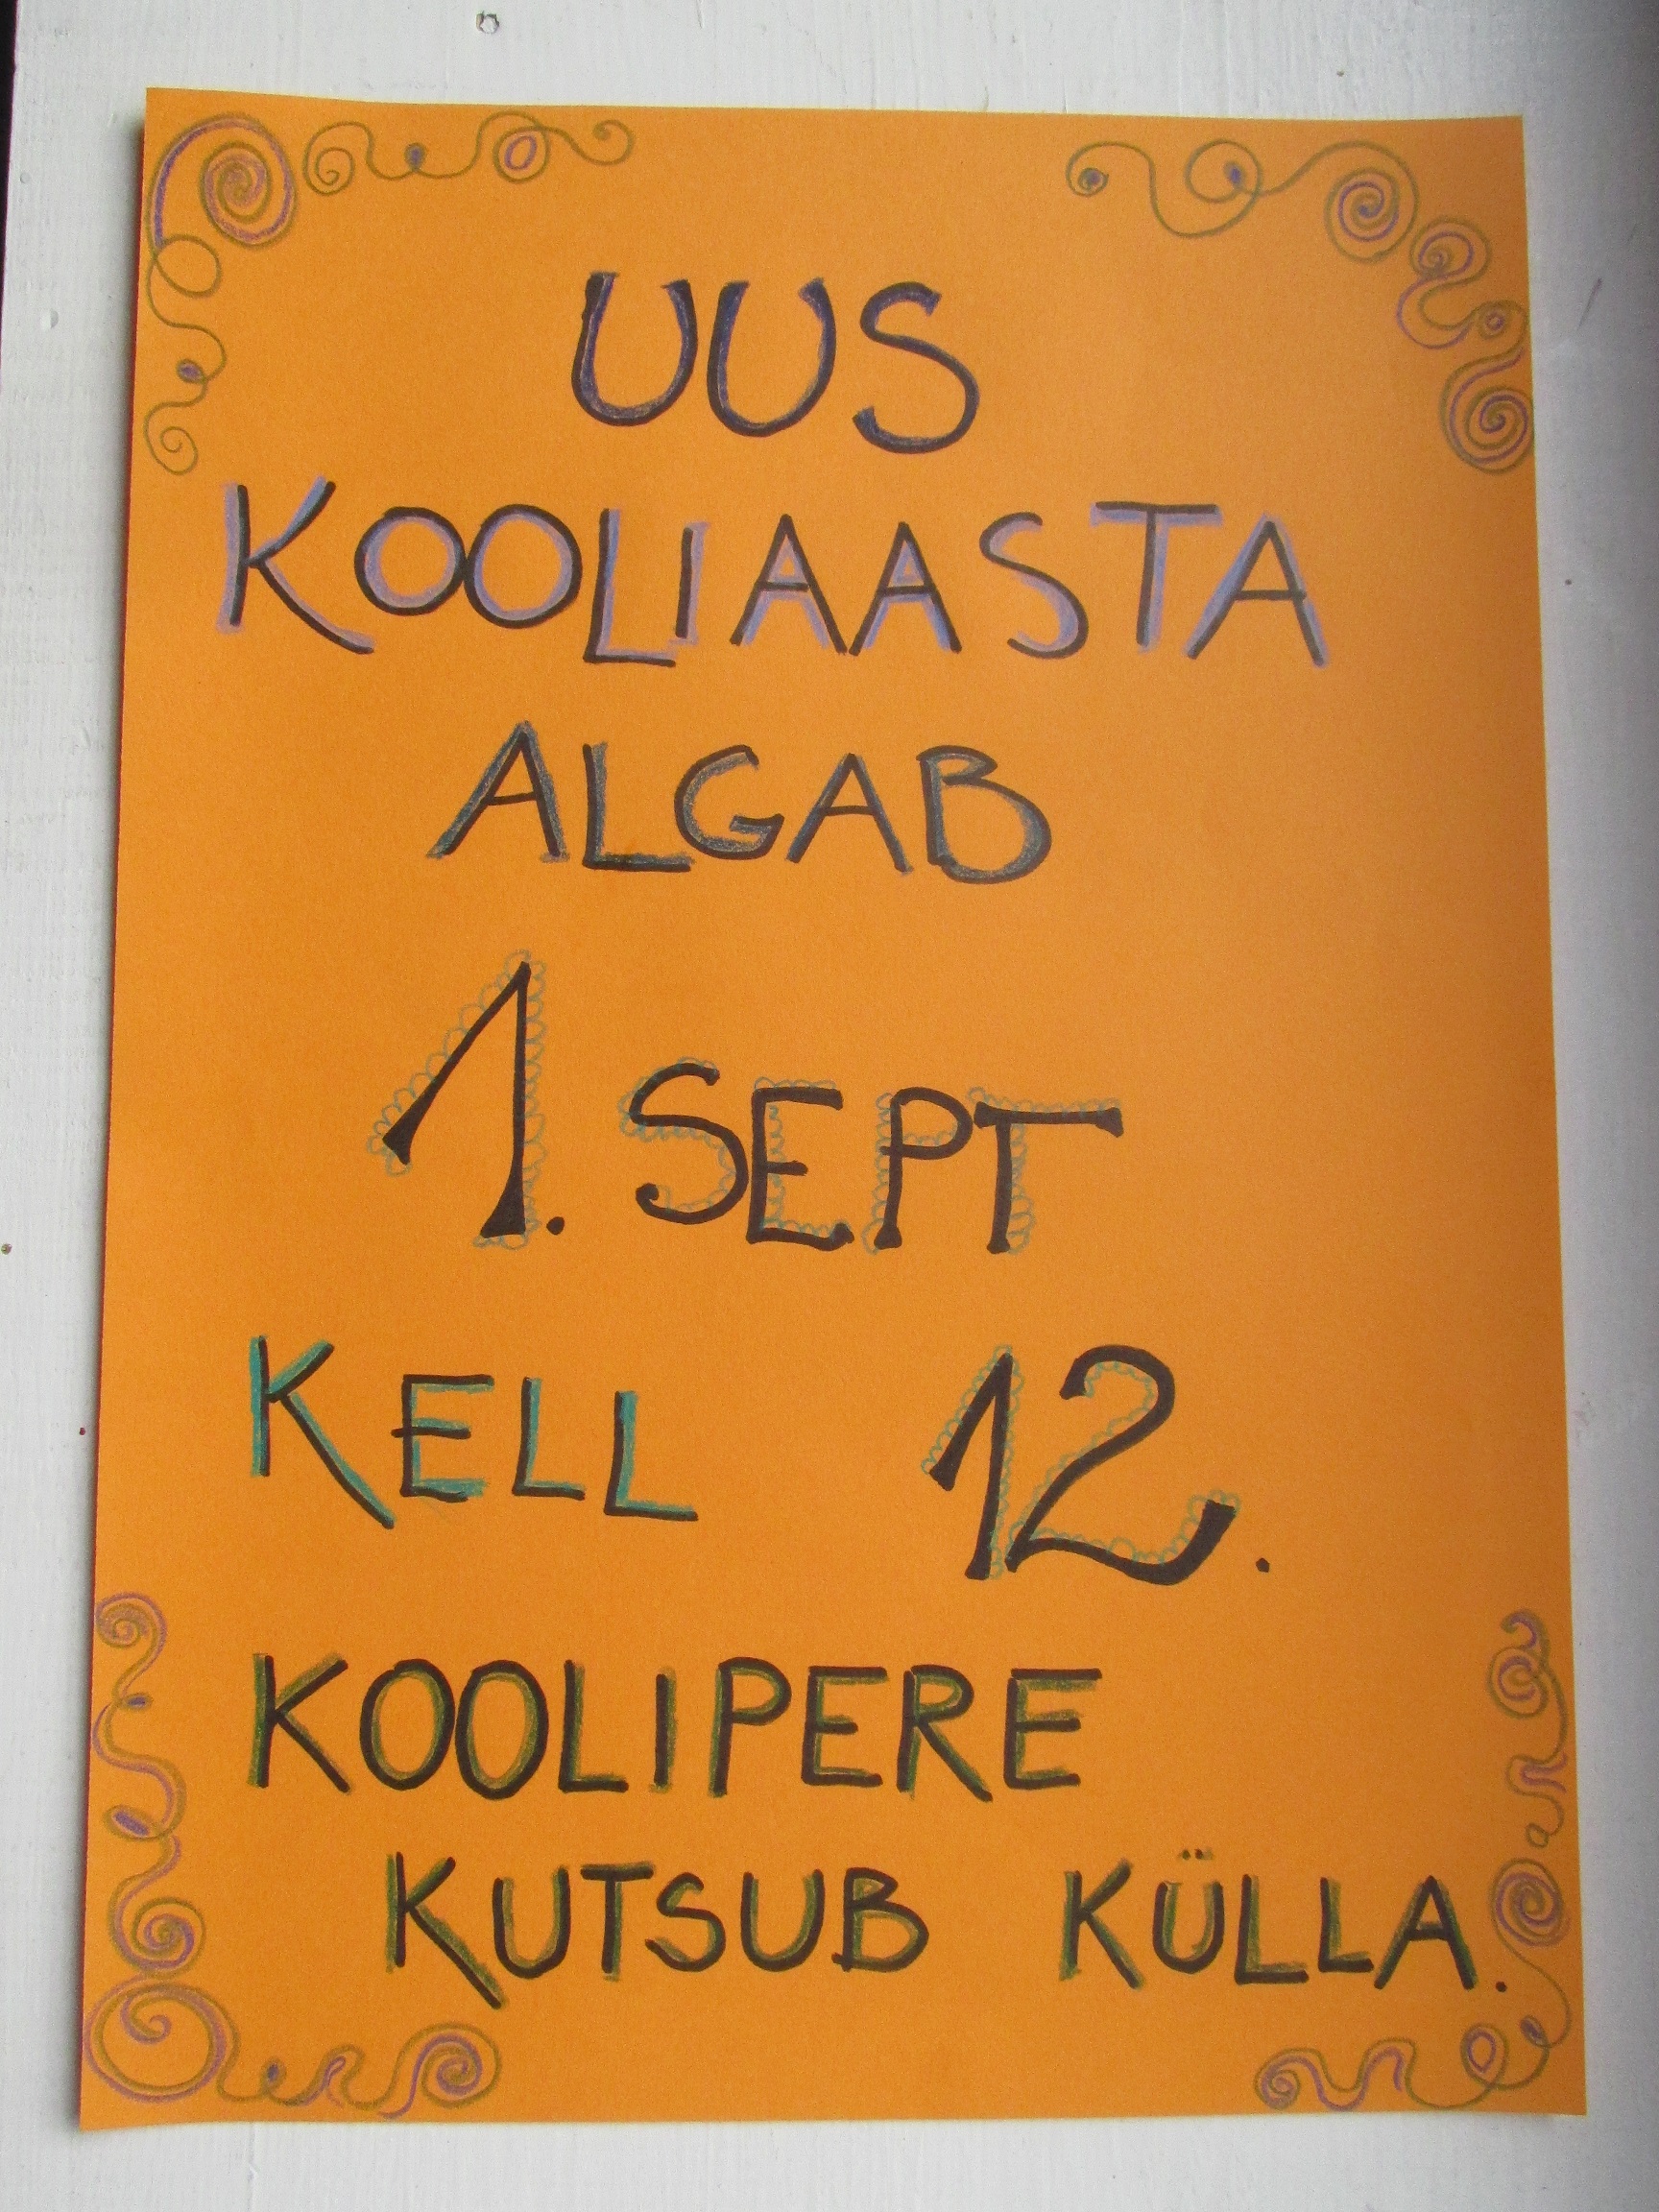 UUS
KOOLIAASTA
ALGAB
1. SEPT
KELL 12.
KOOLIPERE
KUTSUB KÜLLA.